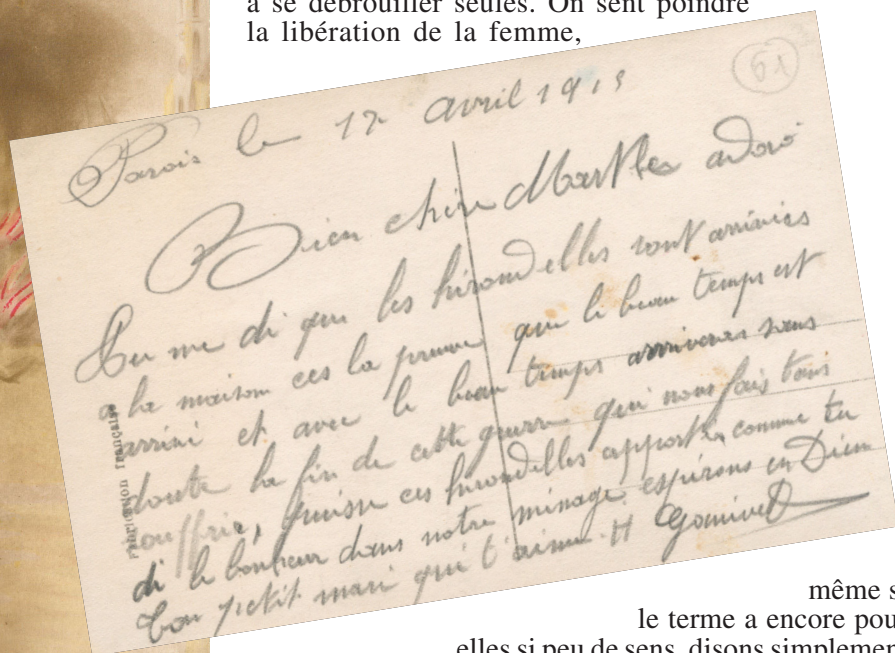 à se débrouiller seules. On sent poindre
la libération de la femme,
61
Parois le 17 avril 1915
Bien chère Marthe adoré
Tu me di que les hirondelles sont arrivées
a la maison ces la preuve que le beau temps est
arrivé et avec le beau temps arriveras sans
doute la fin de cette guerre qui nous fais tans
souffrir, puisse ces hirondelles apporter comme tu
di le bonheur dans notre ménage espérons en Dieu
Ton petit mari qui t'aime. H
Fabrication française
même s
le terme a encore pou
elles si peu de sens, disons simplemen